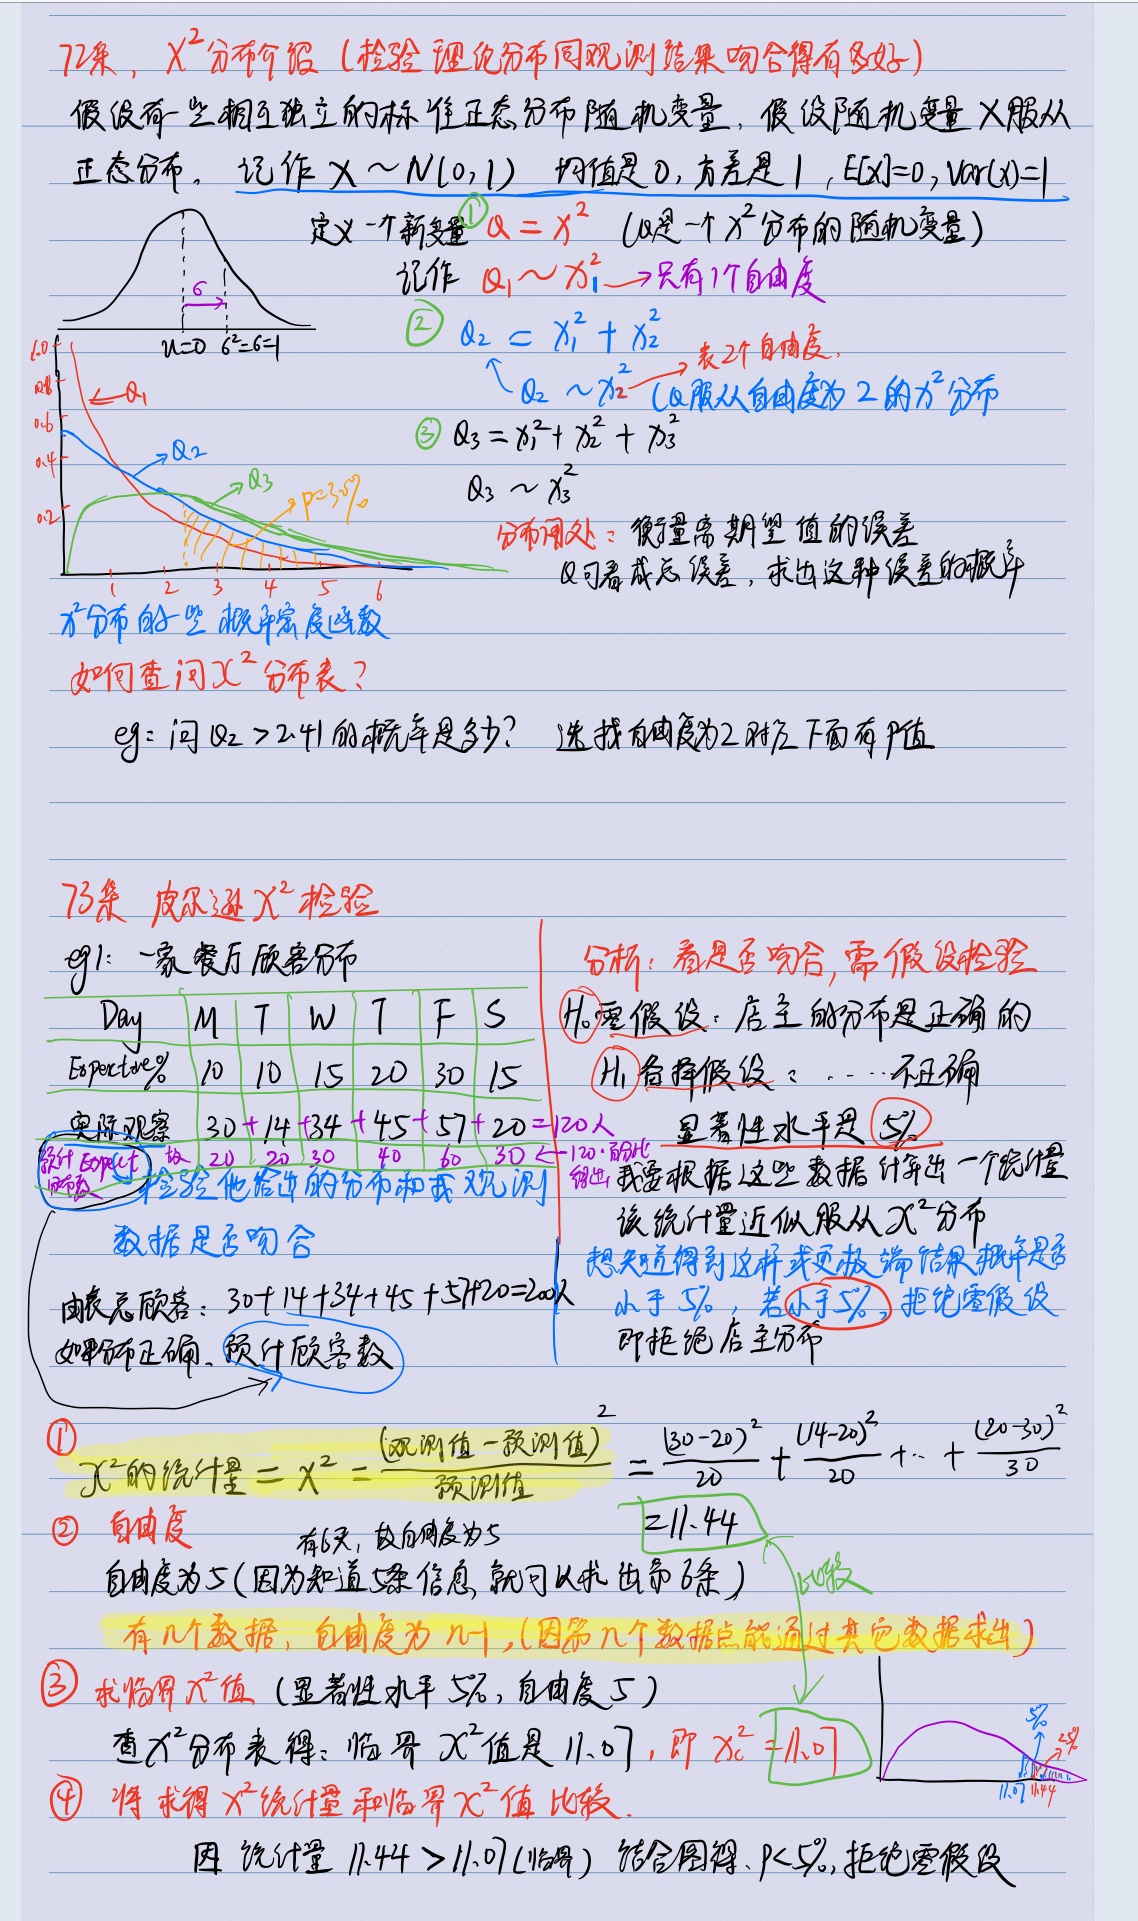 72集, X²分布介绍 (检验理论分布同观测结果吻合得有多好)
假设有一些相互独立的标准正态分布随机变量, 假设随机变量X服从
正态分布。 记作 X ~ N(0,1) 均值是0, 方差是1, E[X]=0, Var(x)=1
定义一个新变量 ① Q = X² (Q是一个X²分布的随机变量)
记作 Q₁ ~ X₁² → 只有1个自由度
σ
u=0 σ²=σ=1
② Q₂ = X₁² + X₂²
表2个自由度.
Q₂ ~ X₂² (Q服从自由度为2的X²分布
③ Q₃ = X₁² + X₂² + X₃²
Q₃ ~ X₃²
1.0
0.8
0.6
0.4
0.2
Q₁
Q₂
Q₃
P=30%
1 2 3 4 5 6
分布用处: 衡量离期望值的误差
Q可看成总误差, 求出这种误差的概率
X²分布的一些概率密度函数
如何查询X²分布表?
eg: 问Q₂ > 2.41的概率是多少? 选找自由度为2对应下面有P值
73集 皮尔逊X²检验
eg1: 一家餐厅顾客分布
Day M T W T F S
Expective% 10 10 15 20 30 15
实际观察 30 + 14 + 34 + 45 + 57 + 20 = 120人
预计 Expect 故 20 20 30 40 60 30 ← 120·百分比
得出
检验他给出的分布和我观测
数据是否吻合
由表总顾客: 30+14+34+45+57+20=200人
如果分布正确、预计顾客数
分析: 看是否吻合, 需假设检验
H₀零假设: 店主的分布是正确的
H₁备择假设: ......不正确
显著性水平是5%
我要根据这些数据计算出一个统计量
该统计量近似服从X²分布
想知道得到这样或更极端结果概率是否
小于5%, 若小于5%, 拒绝零假设
即拒绝店主分布
① X²的统计量 = X² = (观测值-预测值)²/预测值 = (30-20)²/20 + (14-20)²/20 + ·· + (20-30)²/30
= 11.44
② 自由度 有6天, 故自由度为5
自由度为5 (因为知道5条信息, 就可以求出第6条)
比较
有n个数据, 自由度为n-1, (因第n个数据点能通过其它数据求出)
③ 求临界X²值 (显著性水平5%, 自由度5)
查X²分布表得: 临界X²值是11.07, 即 Xc² = 11.07
5%
2%
11.07 11.44
④ 将求得X²统计量和临界X²值比较.
因 统计量 11.44 > 11.07(临界) 结合图得、P<5%, 拒绝零假设